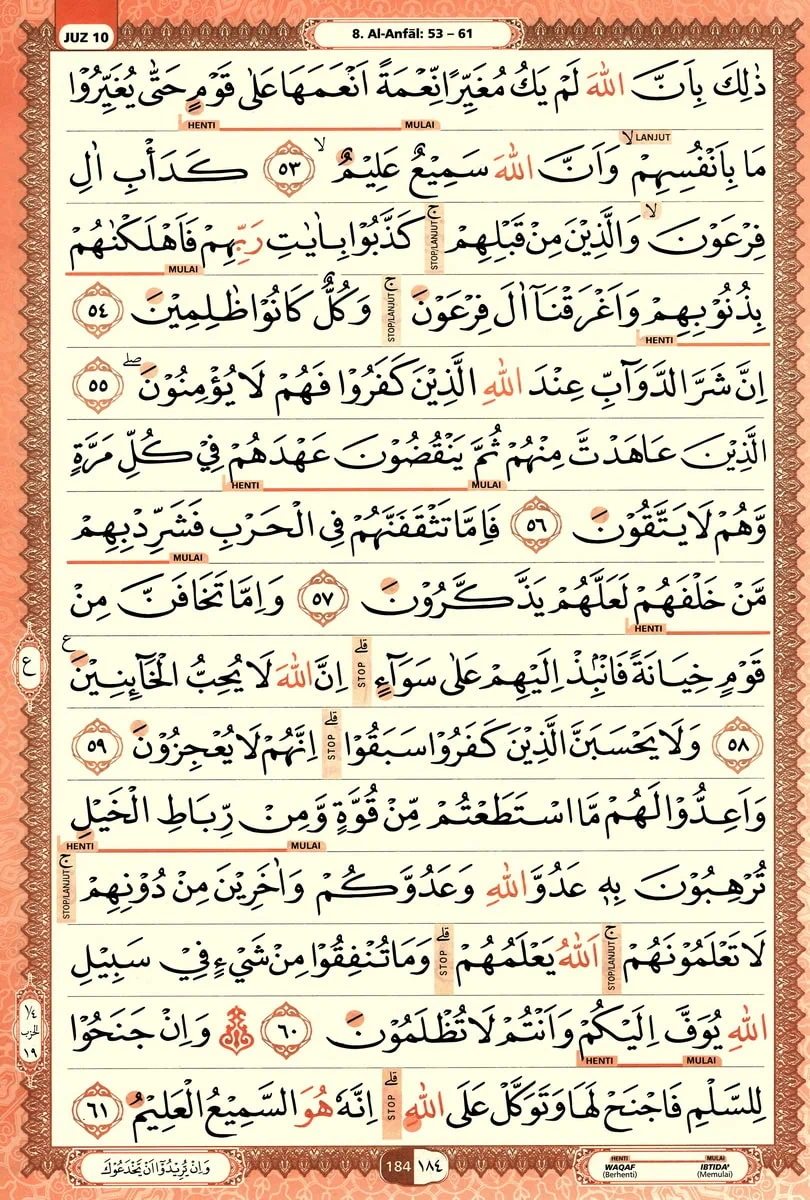 JUZ 10
8. Al-Anfāl: 53 – 61
ذٰلِكَ بِاَنَّ اللّٰهَ لَمْ يَكُ مُغَيِّرًا نِّعْمَةً اَنْعَمَهَا عَلٰى قَوْمٍ حَتّٰى يُغَيِّرُوْا
HENTI MULAI
LANJUT
مَا بِاَنْفُسِهِمْۙ وَاَنَّ اللّٰهَ سَمِيْعٌ عَلِيْمٌۙ ٥٣ كَدَأْبِ اٰلِ
فِرْعَوْنَۙ وَالَّذِيْنَ مِنْ قَبْلِهِمْۚ STOP/LANJUT كَذَّبُوْا بِاٰيٰتِ رَبِّهِمْ فَاَهْلَكْنٰهُمْ
MULAI
بِذُنُوْبِهِمْ وَاَغْرَقْنَآ اٰلَ فِرْعَوْنَۚ STOP/LANJUT وَكُلٌّ كَانُوْا ظٰلِمِيْنَ ٥٤
HENTI
اِنَّ شَرَّ الدَّوَاۤبِّ عِنْدَ اللّٰهِ الَّذِيْنَ كَفَرُوْا فَهُمْ لَا يُؤْمِنُوْنَۖ ٥٥
الَّذِيْنَ عَاهَدْتَّ مِنْهُمْ ثُمَّ يَنْقُضُوْنَ عَهْدَهُمْ فِيْ كُلِّ مَرَّةٍ
HENTI MULAI
وَّهُمْ لَا يَتَّقُوْنَ ٥٦ فَاِمَّا تَثْقَفَنَّهُمْ فِى الْحَرْبِ فَشَرِّدْ بِهِمْ
MULAI
مَّنْ خَلْفَهُمْ لَعَلَّهُمْ يَذَّكَّرُوْنَ ٥٧ وَاِمَّا تَخَافَنَّ مِنْ
HENTI
قَوْمٍ خِيَانَةً فَانْۢبِذْ اِلَيْهِمْ عَلٰى سَوَاۤءٍۗ STOP اِنَّ اللّٰهَ لَا يُحِبُّ الْخَاۤىِٕنِيْنَ ع
ع
٥٨ وَلَا يَحْسَبَنَّ الَّذِيْنَ كَفَرُوْا سَبَقُوْاۗ STOP اِنَّهُمْ لَا يُعْجِزُوْنَ ٥٩
وَاَعِدُّوْا لَهُمْ مَّا اسْتَطَعْتُمْ مِّنْ قُوَّةٍ وَّمِنْ رِّبَاطِ الْخَيْلِ
HENTI MULAI
تُرْهِبُوْنَ بِهٖ عَدُوَّ اللّٰهِ وَعَدُوَّكُمْ وَاٰخَرِيْنَ مِنْ دُوْنِهِمْۚ STOP/LANJUT
لَا تَعْلَمُوْنَهُمْۚ STOP/LANJUT اَللّٰهُ يَعْلَمُهُمْۗ STOP وَمَا تُنْفِقُوْا مِنْ شَيْءٍ فِيْ سَبِيْلِ
اللّٰهِ يُوَفَّ اِلَيْكُمْ وَاَنْتُمْ لَا تُظْلَمُوْنَ ٦٠ وَاِنْ جَنَحُوْا
HENTI MULAI
١/٤ الحزب ١٩
لِلسَّلْمِ فَاجْنَحْ لَهَا وَتَوَكَّلْ عَلَى اللّٰهِۗ STOP اِنَّهٗ هُوَ السَّمِيْعُ الْعَلِيْمُ ٦١
وَاِنْ يُّرِيْدُوْٓا اَنْ يَّخْدَعُوْكَ
184 ١٨٤
HENTI MULAI
WAQAF IBTIDA'
(Berhenti) (Memulai)